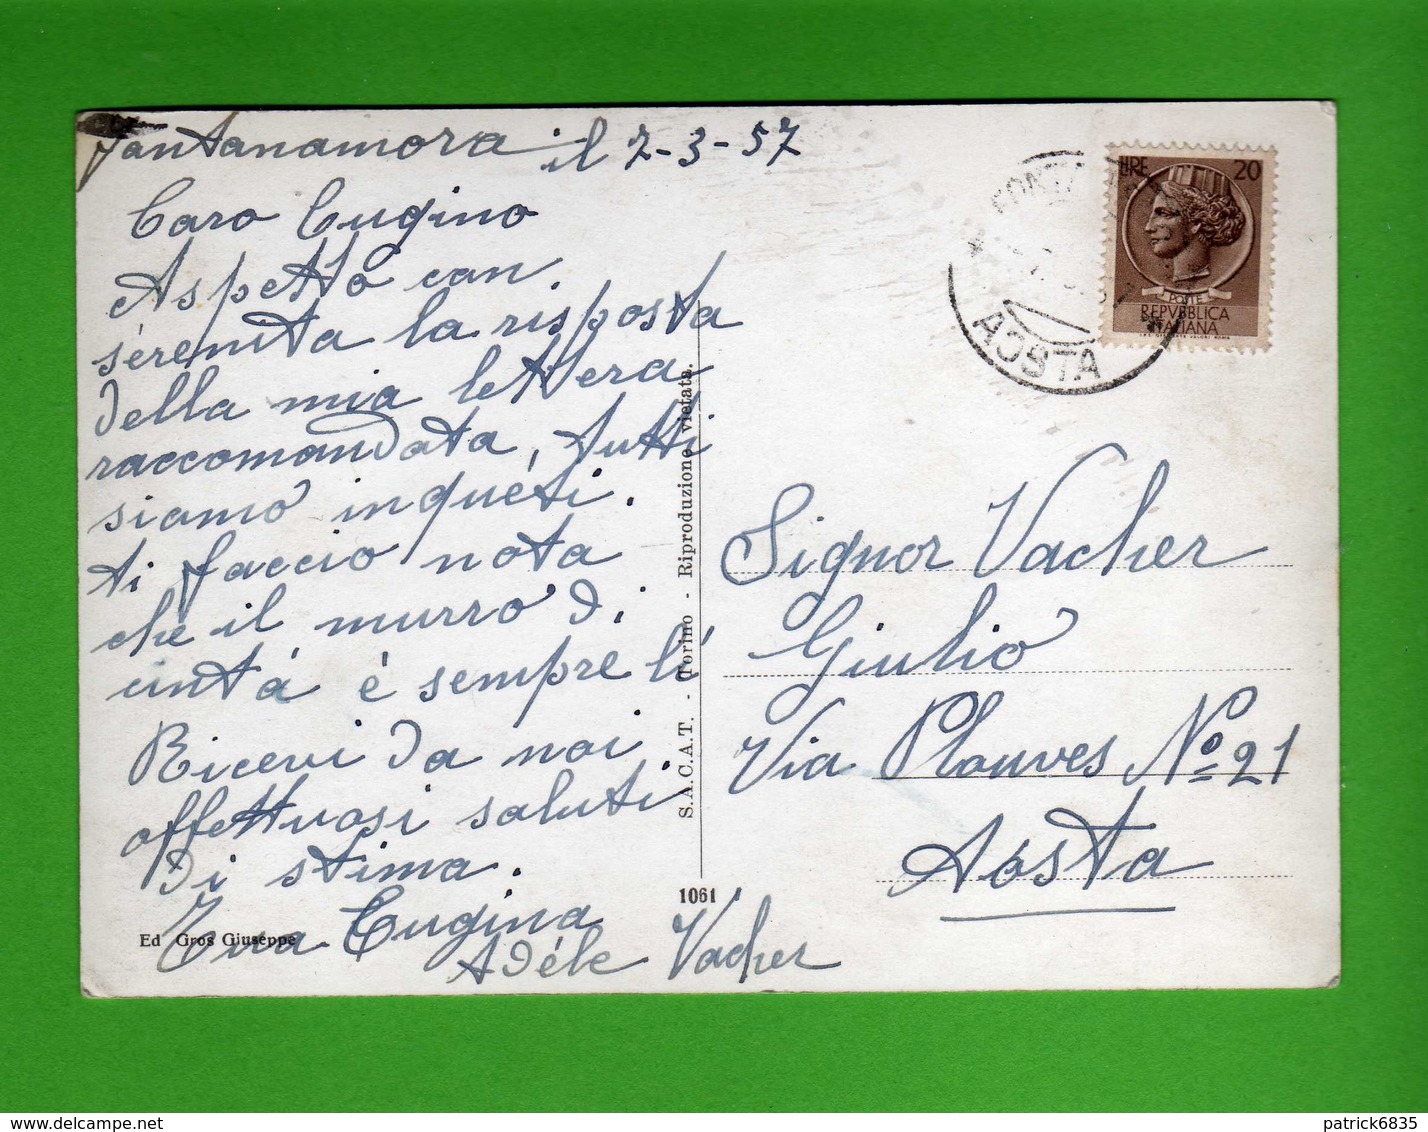 Fontanamora il 2-3-57
Caro Cugino
Aspetto con
serenita la risposta
della mia lettera
raccomandata, tutti
siamo inquéti.
ti faccio nota
che il murro di
cintá é sempre lí
Ricevi da noi
affettuosi saluti
di stima.
Tua Cugina
Adéle Vacher
Ed Gros Giuseppe
S.A.C.A.T. - Torino - Riproduzione vietata.
1061
LIRE 20
POSTE
REPVBBLICA
ITALIANA
AOSTA
Signor Vacher
Giulio
Via Plouves Nº 21
Aosta
patrick6835